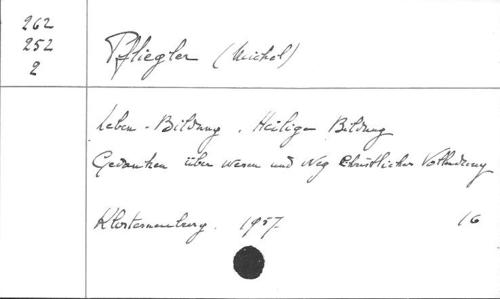 262
252
2
Pfliegler (Michel)
Leben - Bildung. Heilige Bildung
Gedanken über Wesen und Weg Christlicher Vollendung
Klosterneuburg. 1957. 16